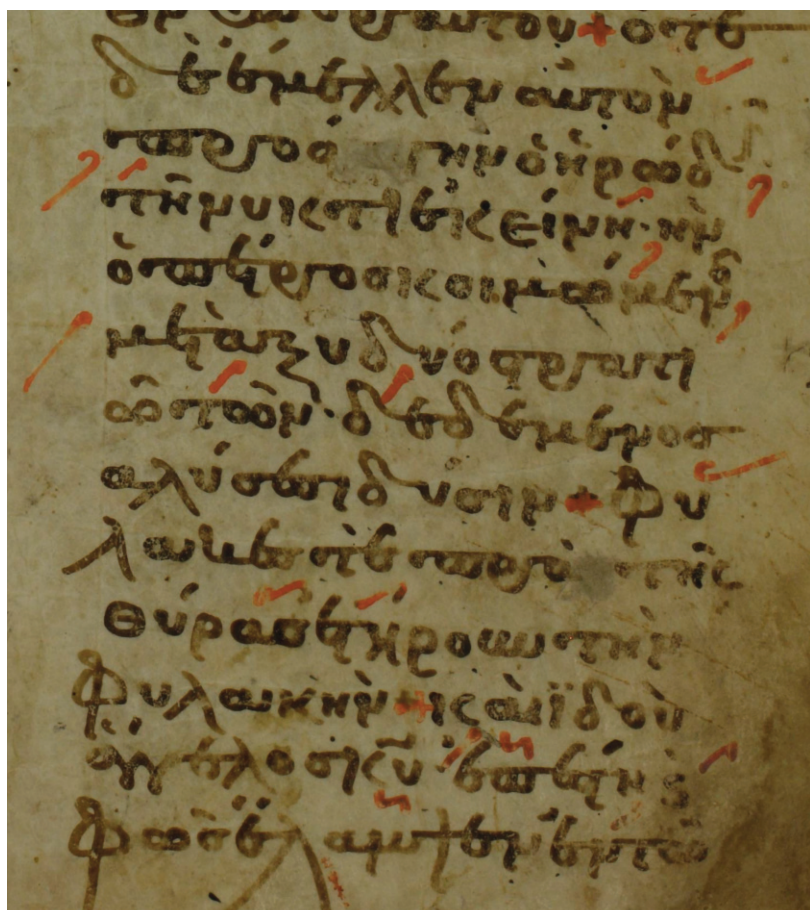 αὐτοῦ + ὅτε
δὲ ἔμελλεν αὐτὸν
προάγειν ὁ ἡρώδ
τῆ νυκτὶ ἐκείνη· ἦν
ὁ πέτρος κοιμώμεν
μεταξὺ δύο στρατι
ωτῶν· δεδεμένος
ἁλύσεσι δυσίν + φύ
λακές τε πρὸ τῆς
θύρας ἐτήρουν τὴν
φυλακήν + καὶ ἰδοὺ
ἄγγελος κ̅υ̅ ἐπέστη κ
φῶς ἔλαμψεν ἐν τῶ